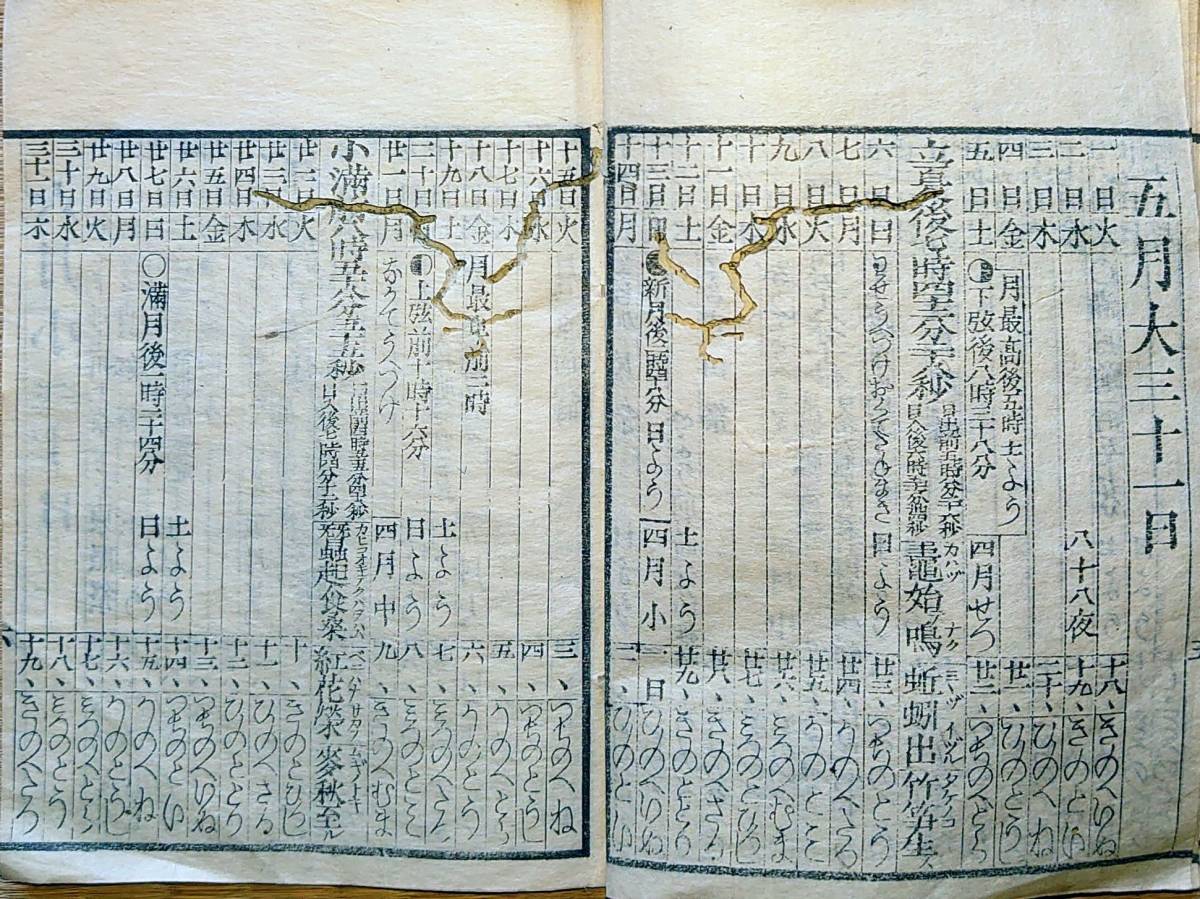 五月大三十一日
一日火 十八、きのへいぬ
二日水 八十八夜 十九、きのとい
三日木 二十、ひのへね
四日金 月最高後五時 土よう 廿一、ひのとうし
五日土 下弦後八時三十八分 四月せつ 廿二、つちのへとら
立夏後七時四十六分 秒 日出前五時 分 秒 日入後六時 分 秒 鼃始鳴 カハヅ ナク 蚯蚓出 ミヽヅイヅル 竹笋生 タケノコ
六日日 日よう 廿三、つちのとう
七日月 廿四、かのへたつ
八日火 廿五、かのとみ
九日水 廿六、みつのへむま
十日木 廿七、みつのとひつし
十一日金 廿八、きのへさる
十二日土 土よう 廿九、きのととり
十三日日 新月後 時 分 日よう 四月小 一日ひのへいぬ
十四日月 二、ひのとい
十五日火 三、つちのへね
十六日水 四、つちのとうし
十七日木 五、かのへとら
十八日金 月最 前二時 六、かのとう
十九日土 土よう 七、みつのへたつ
二十日 上弦前十時十六分 日よう 八、みつのとみ
廿一日月 四月中 九、きのへむま
小満 八時 分 秒 日入後七時 分 秒 蚕起食桑 紅花栄 麦秋至ル
廿二日火 十、きのとひつし
廿三日水 十一、ひのへさる
廿四日木 十二、ひのととり
廿五日金 十三、つちのへいぬ
廿六日土 土よう 十四、つちのとい
廿七日日 〇満月後一時二十四分 日よう 十五、かのへね
廿八日月 十六、かのとうし
廿九日火 十七、みつのへとら
三十日水 十八、みつのとう
三十一日木 十九、きのへたつ